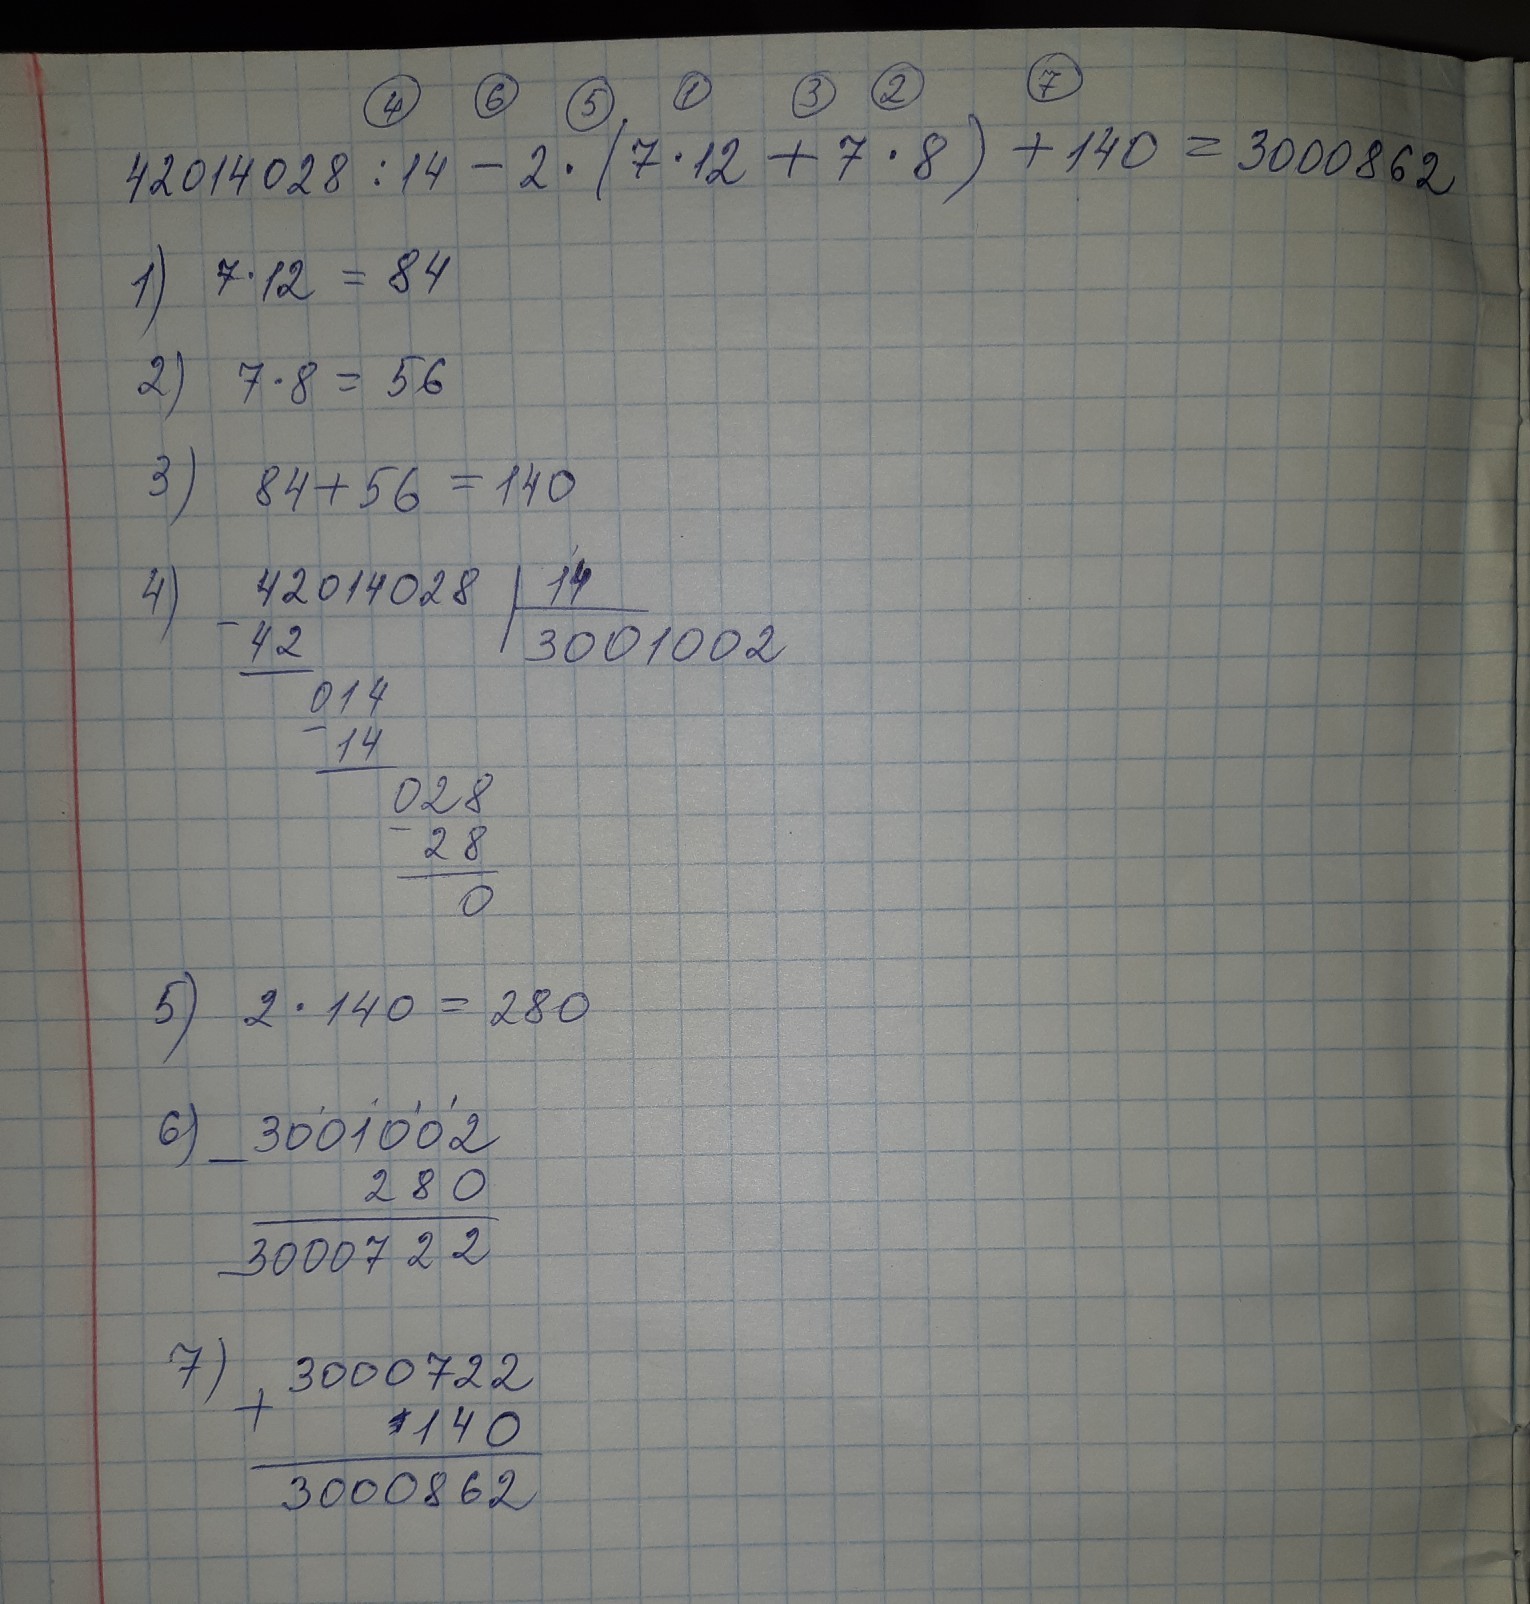 ④ ⑥ ⑤ ① ③ ② ⑦
42014028 : 14 - 2 · (7 · 12 + 7 · 8) + 140 = 3000862
1) 7 · 12 = 84
2) 7 · 8 = 56
3) 84 + 56 = 140
4) 42014028 | 14
- 42 3001002
014
- 14
028
- 28
0
5) 2 · 140 = 280
6) - 3001002
280
3000722
7) 3000722
+ 140
3000862